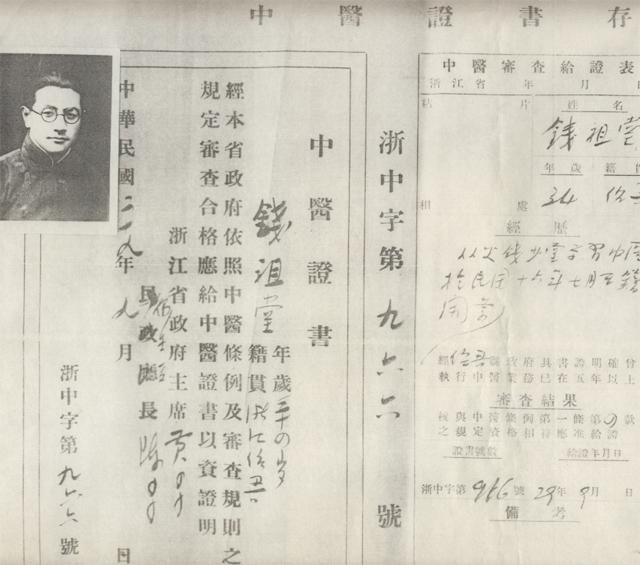 中醫證書存
中醫審查給證表
浙江省 年 月 日
粘 片
姓名
錢祖堂
年歲 籍
34
相 處
經歷
從父錢少堂學習中医
於民国十六年七月在鎮
開業
縣政府具書證明確曾
執行中醫業務已在五年以上
審查結果
核與中醫條例第一條第 款
之規定資格相符應准給證
證書號數 給證年月日
浙中字第966號 29年9月 日
備考
浙中字第九六六號
中醫證書
錢祖堂 年歲三十四岁
籍貫浙江
經本省政府依照中醫條例及審查規則之
規定審查合格應給中醫證書以資證明
浙江省政府主席黄
民政廳長
中華民國二十九年九月 日
浙中字第九六六號